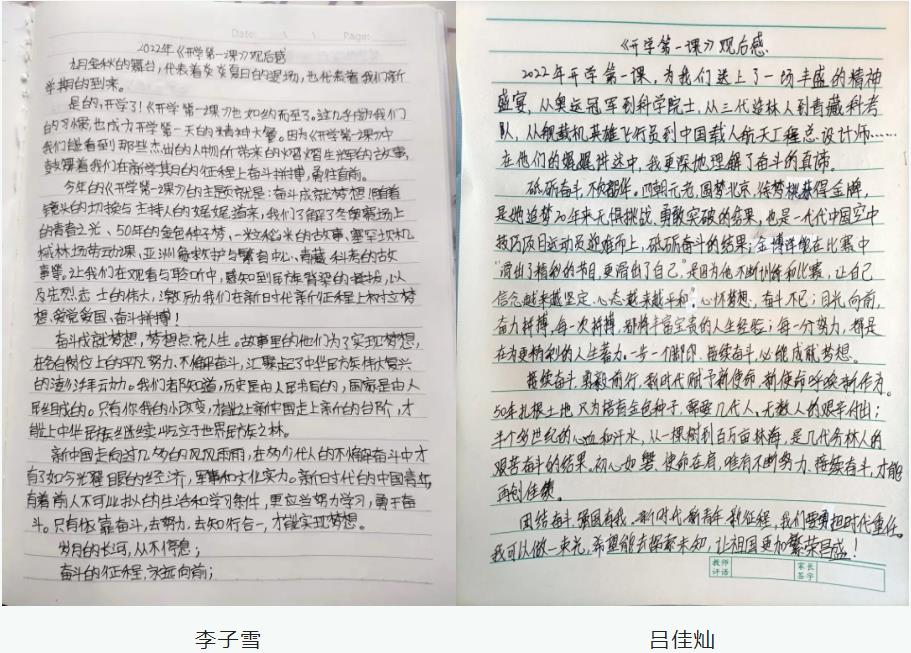 Date:    \    \    Page:
2022年《开学第一课》观后感
九月金秋的舞台，代表着炎炎夏日的退场，也代表着我们新
学期的到来。
是的，开学了！《开学第一课》也如约而至了。这几乎成为我们
的习惯，也成为开学第一天的精神大餐。因为《开学第一课》中
我们能看到那些杰出的人物们带来的熠熠生辉的故事，
鼓舞着我们在新学期的征程上奋斗拼搏，勇往直前。
今年的《开学第一课》的主题就是：奋斗成就梦想。随着
镜头的切换与主持人的娓娓道来，我们了解了冬奥赛场上
的青春之光、50年的金色种子梦、一粒稻米的故事、塞罕坝机
械林场劳动课、亚洲象救护与繁育中心、青藏科考的故
事等。让我们在观看与聆听中，感知到民族脊梁的担当，以
及先烈志士的伟大，激励我们在新时代新征程上树立梦
想、爱党爱国、奋斗拼搏！
奋斗成就梦想，梦想点亮人生。故事里的他们为了实现梦想，
在各自岗位上的平凡努力、不懈奋斗，汇聚起了中华民族伟大复兴
的澎湃动力。我们都知道，历史是由人民书写的，国家是由人
民组成的。只有你我的小改变，才能让新中国走上新的台阶，才
能让中华民族继续屹立于世界民族之林。
新中国走向过几岁的风风雨雨，在两个代人的不懈奋斗中才
有了如今光耀目眼的经济，军事和文化实力。新时代的中国青年，
有着前人不可比拟的生活和学习条件，更应当努力学习，勇于奋
斗。只有依靠奋斗，去努力，去知行合一，才能实现梦想。
岁月的长河，从不停息；
奋斗的征程，永远向前；
《开学第一课》观后感
2022年开学第一课，为我们送上了一场丰盛的精神
盛宴，从奥运冠军到科学院士，从三代造林人到青藏科考
队，从舰载机英雄飞行员到中国载人航天工程总设计师……
在他们的娓娓讲述中，我更深地理解了奋斗的真谛。
砥砺奋斗，不负韶华。四朝元老，圆梦北京，徐梦桃获得金牌，
是她追梦20年来无惧挑战、勇敢突破的结果，也是一代代中国空中
技巧项目运动员迎难而上，砥砺奋斗的结果；金博洋能在比赛中
“滑出了精彩的节目，更滑出了自己”是因为他不断训练和比赛，让自己
信念越来越坚定、心态越来越平和；心怀梦想，奋斗不已；目光向前，
奋力拼搏，每一次拼搏，都将丰富宝贵的人生经验；每一分努力，都是
在为更精彩的人生蓄力。一步一个脚印，接续奋斗，必能成就梦想。
接续奋斗，勇毅前行，新时代赋予新使命，新使命呼唤新作为。
50年扎根土地，只为培育金色种子，需要几代人、无数人的艰辛付出；
半个多世纪的心血和汗水，从一棵树到百万亩林海，是几代务林人的
艰苦奋斗的结果。初心如磐，使命在肩，唯有不断努力，接续奋斗，才能
再创佳绩。
团结奋斗，强国有我，新时代，新青年，新征程，我们需勇担时代重任。
我可以做一束光，希望能去探索未知，让祖国更加繁荣昌盛！
教师评语
家长签字
李子雪
吕佳灿